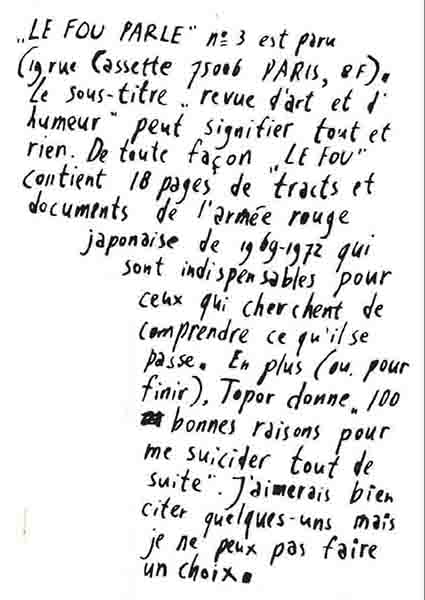 „LE FOU PARLE" nº 3 est paru
(19 rue Cassette 75006 PARIS, 8F).
Le sous-titre „revue d'art et d'
humeur" peut signifier tout et
rien. De toute façon „LE FOU"
contient 18 pages de tracts et
documents de l'armée rouge
japonaise de 1969-1972 qui
sont indispensables pour
ceux qui cherchent de
comprendre ce qu'il se
passe. En plus (ou, pour
finir), Topor donne „100
bonnes raisons pour
me suicider tout de
suite". J'aimerais bien
citer quelques-uns mais
je ne peux pas faire
un choix.